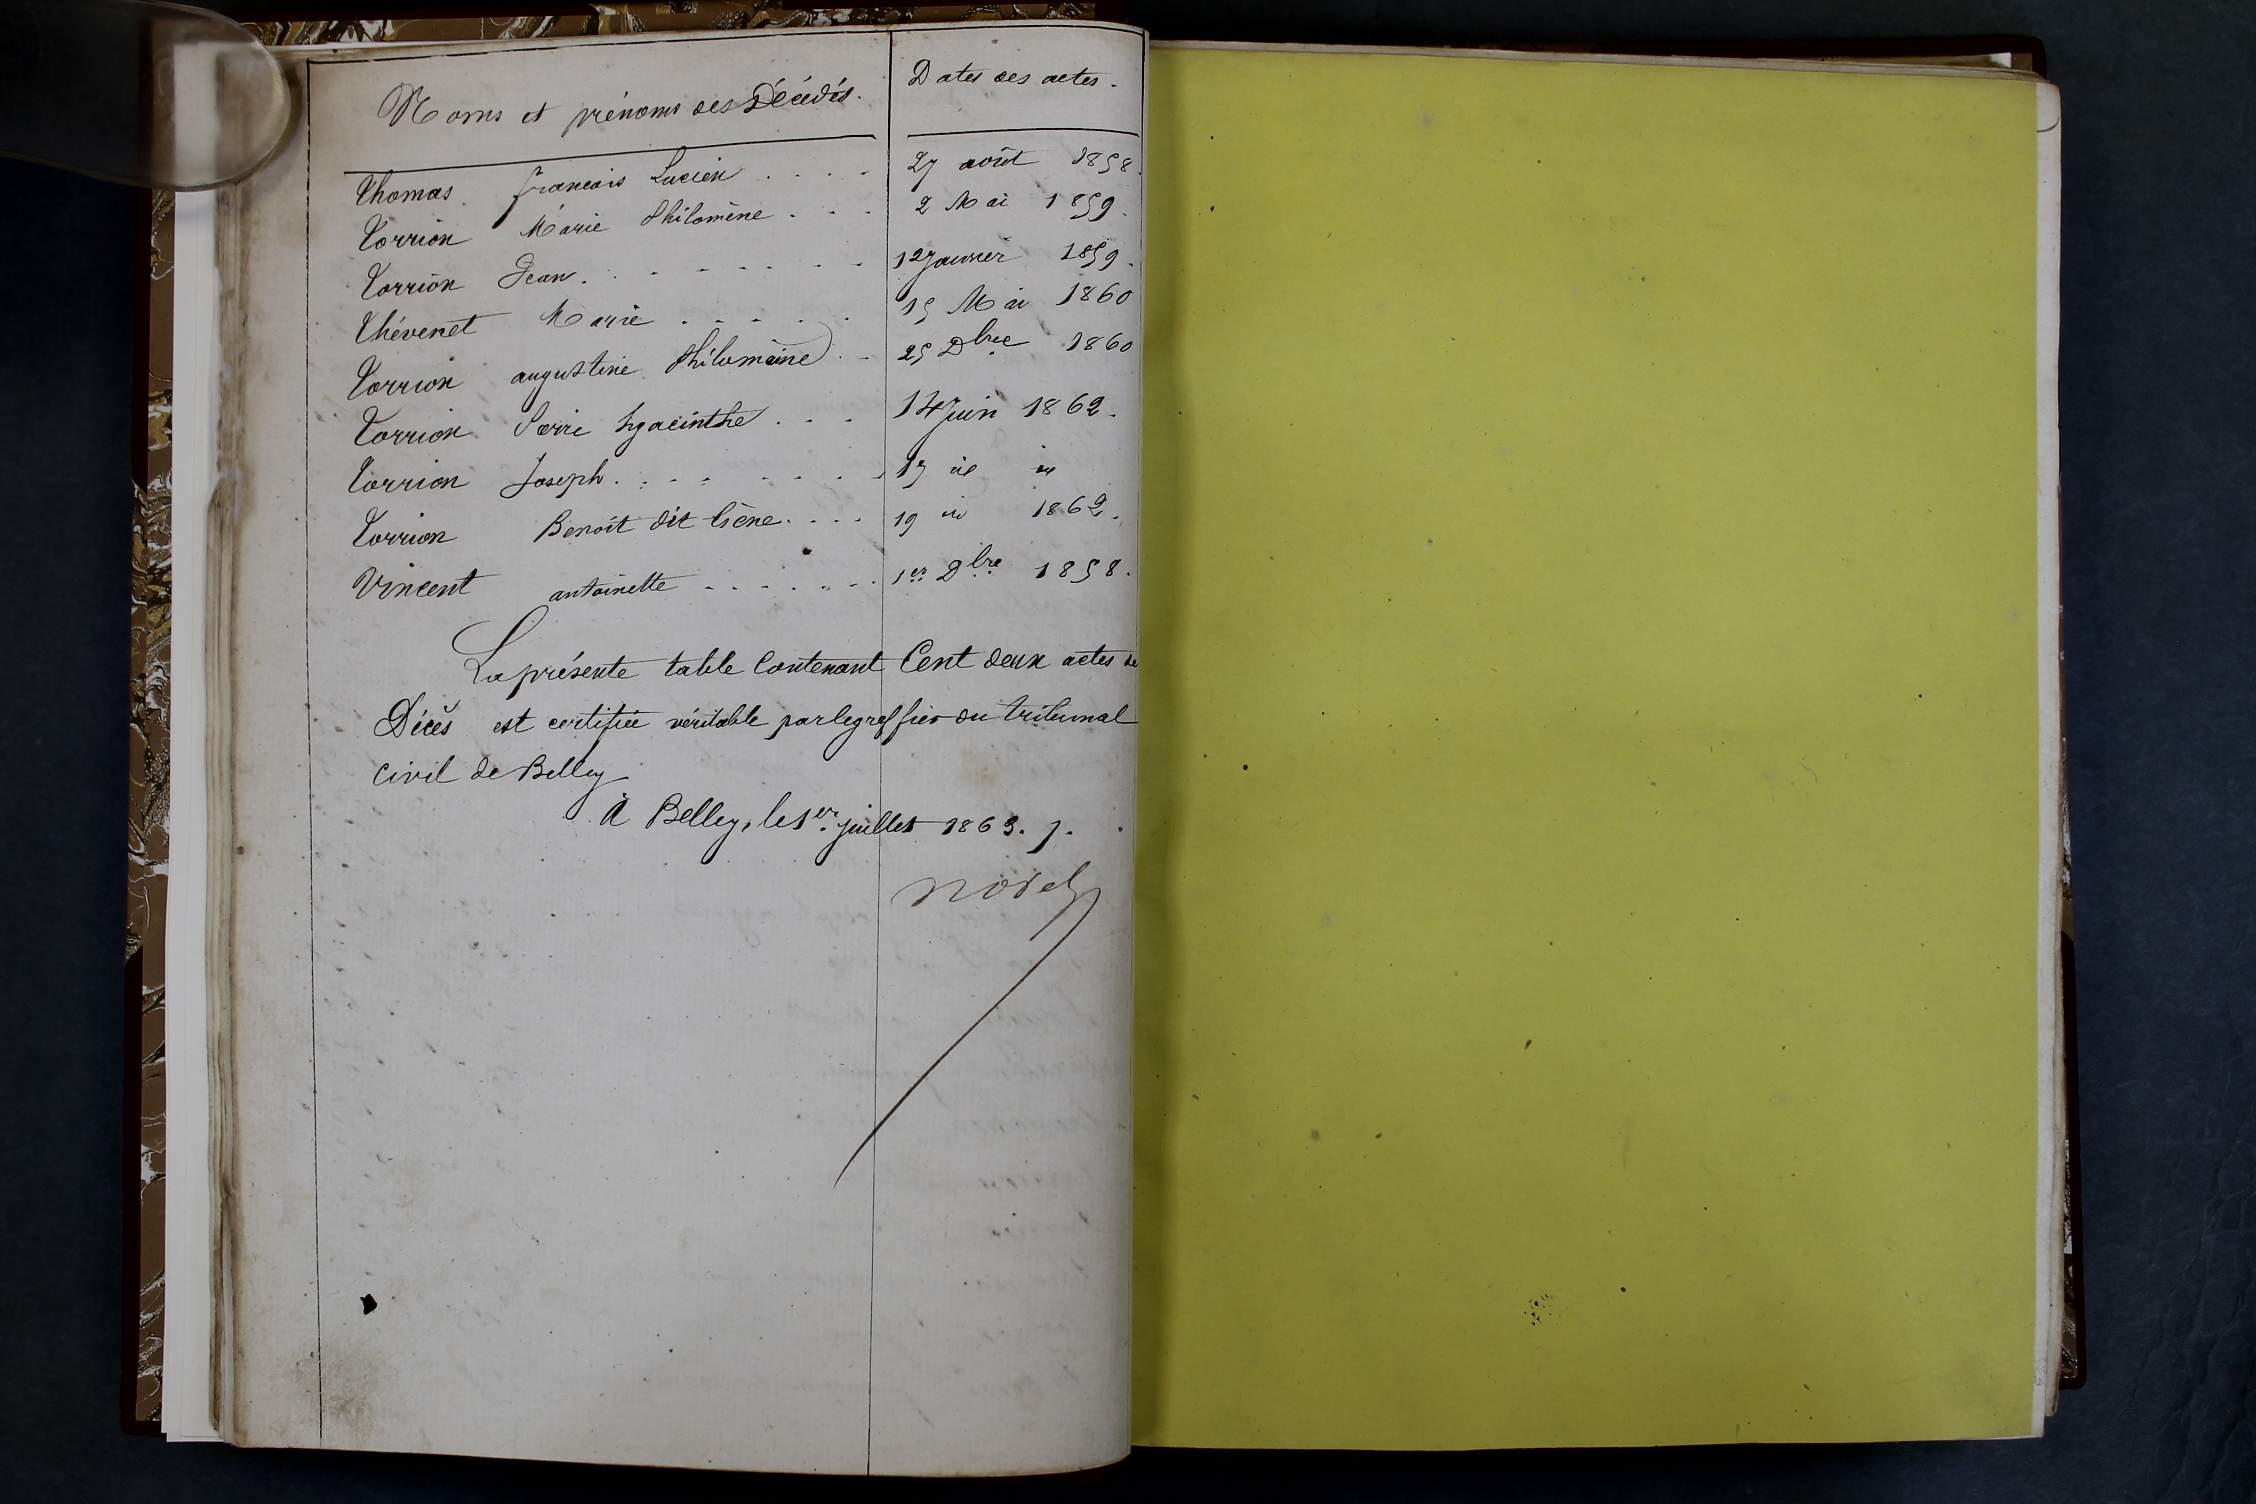 Noms et prénoms des Décédés. Dates des actes.
Thomas francois Lucien . . . . 27 août 1858.
Torrion Marie Philomène . . . 2 Mai 1859.
Torrion Jean . . . . . . . 12 Janvier 1859.
Thévenet Marie . . . . . 15 Mai 1860
Torrion augustine Philomène . . 25 Dbre 1860
Torrion Pierre hyacinthe . . . 14 Juin 1862.
Torrion Joseph . . . . . . . 17 id id
Torrion Benoît dit . . . . 19 id 1862.
Vincent antoinette . . . . . . . 1er Dbre 1858.
La présente table Contenant Cent deux actes de
Décès est certifiée véritable par le greffier du tribunal
Civil de Belley
à Belley, le 1er juillet 1863. J.